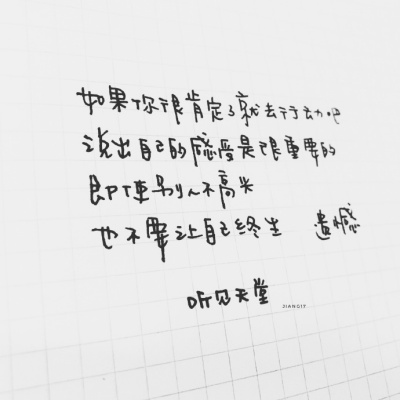 如果你很肯定了就去行动吧
说出自己的感受是很重要的
即使别人不高兴
也不要让自己终生 遗憾
听见天堂
JIANG17